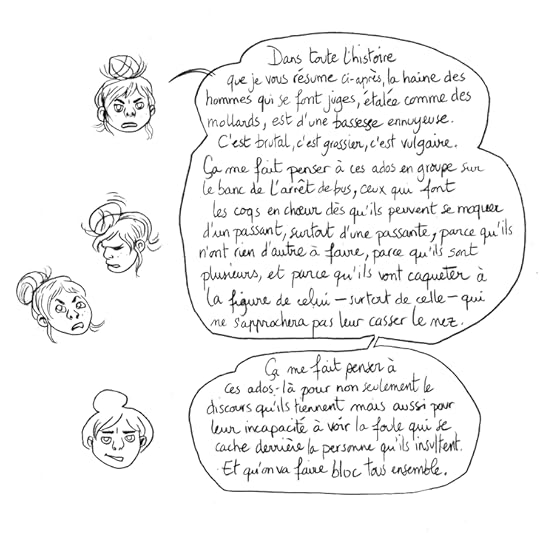 Dans toute l'histoire
que je vous résume ci-après, la haine des
hommes qui se font juges, étalée comme des
mollards, est d'une bassesse ennuyeuse.
C'est brutal, c'est grossier, c'est vulgaire.
Ça me fait penser à ces ados en groupe sur
le banc de l'arrêt de bus, ceux qui font
les coqs en chœur dès qu'ils peuvent se moquer
d'un passant, surtout d'une passante, parce qu'ils
n'ont rien d'autre à faire, parce qu'ils sont
plusieurs, et parce qu'ils vont caqueter à
la figure de celui – surtout de celle – qui
ne s'approchera pas leur casser le nez.
Ça me fait penser à
ces ados-là pour non seulement le
discours qu'ils tiennent mais aussi pour
leur incapacité à voir la foule qui se
cache derrière la personne qu'ils insultent.
Et qu'on va faire bloc tous ensemble.